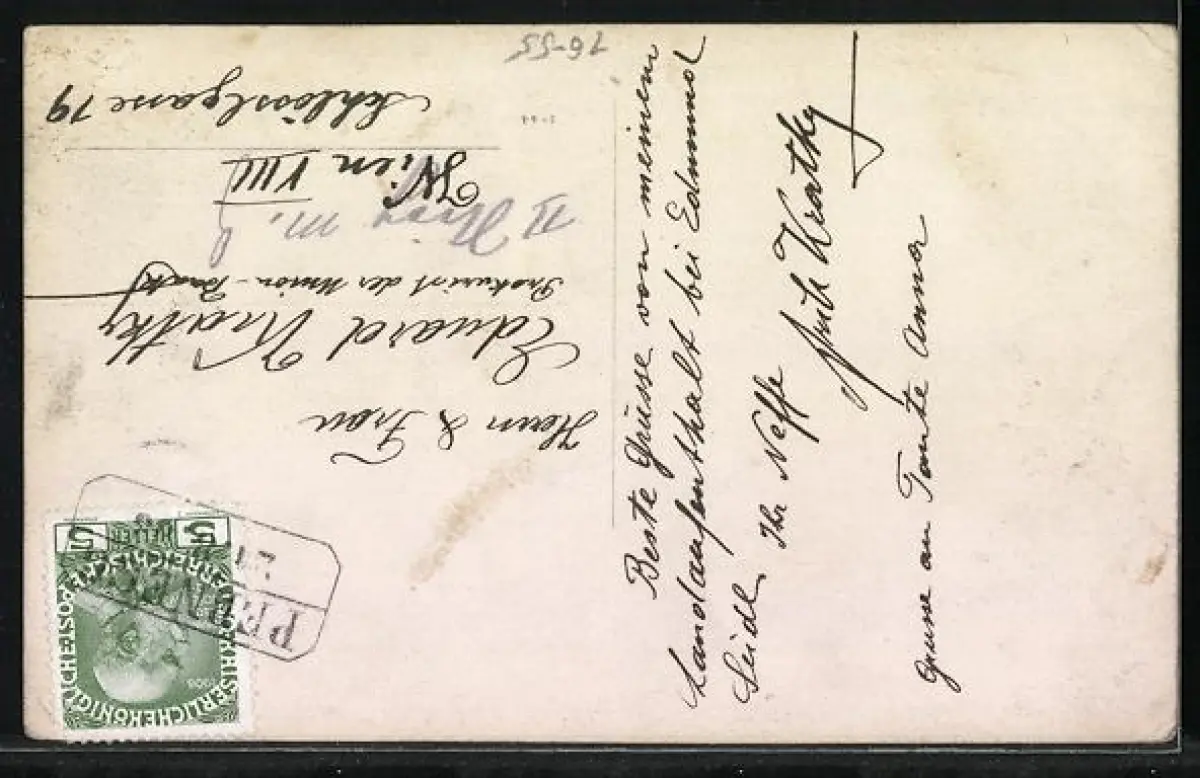 Beste Grüsse von meinem
Landaufenthalt bei Edmund
Seidl.
Ihr Neffe
Kratky
Grüsse an Tante Anna
Herrn & Frau
Eduard Kratky
Prokurist der Union-Bank
II
Wien VIII
Schlösslgasse 19
76-55
5 HELLER 5
KAISERLICHEKÖNIGL
ÖSTERREICHISCHE POST
1908